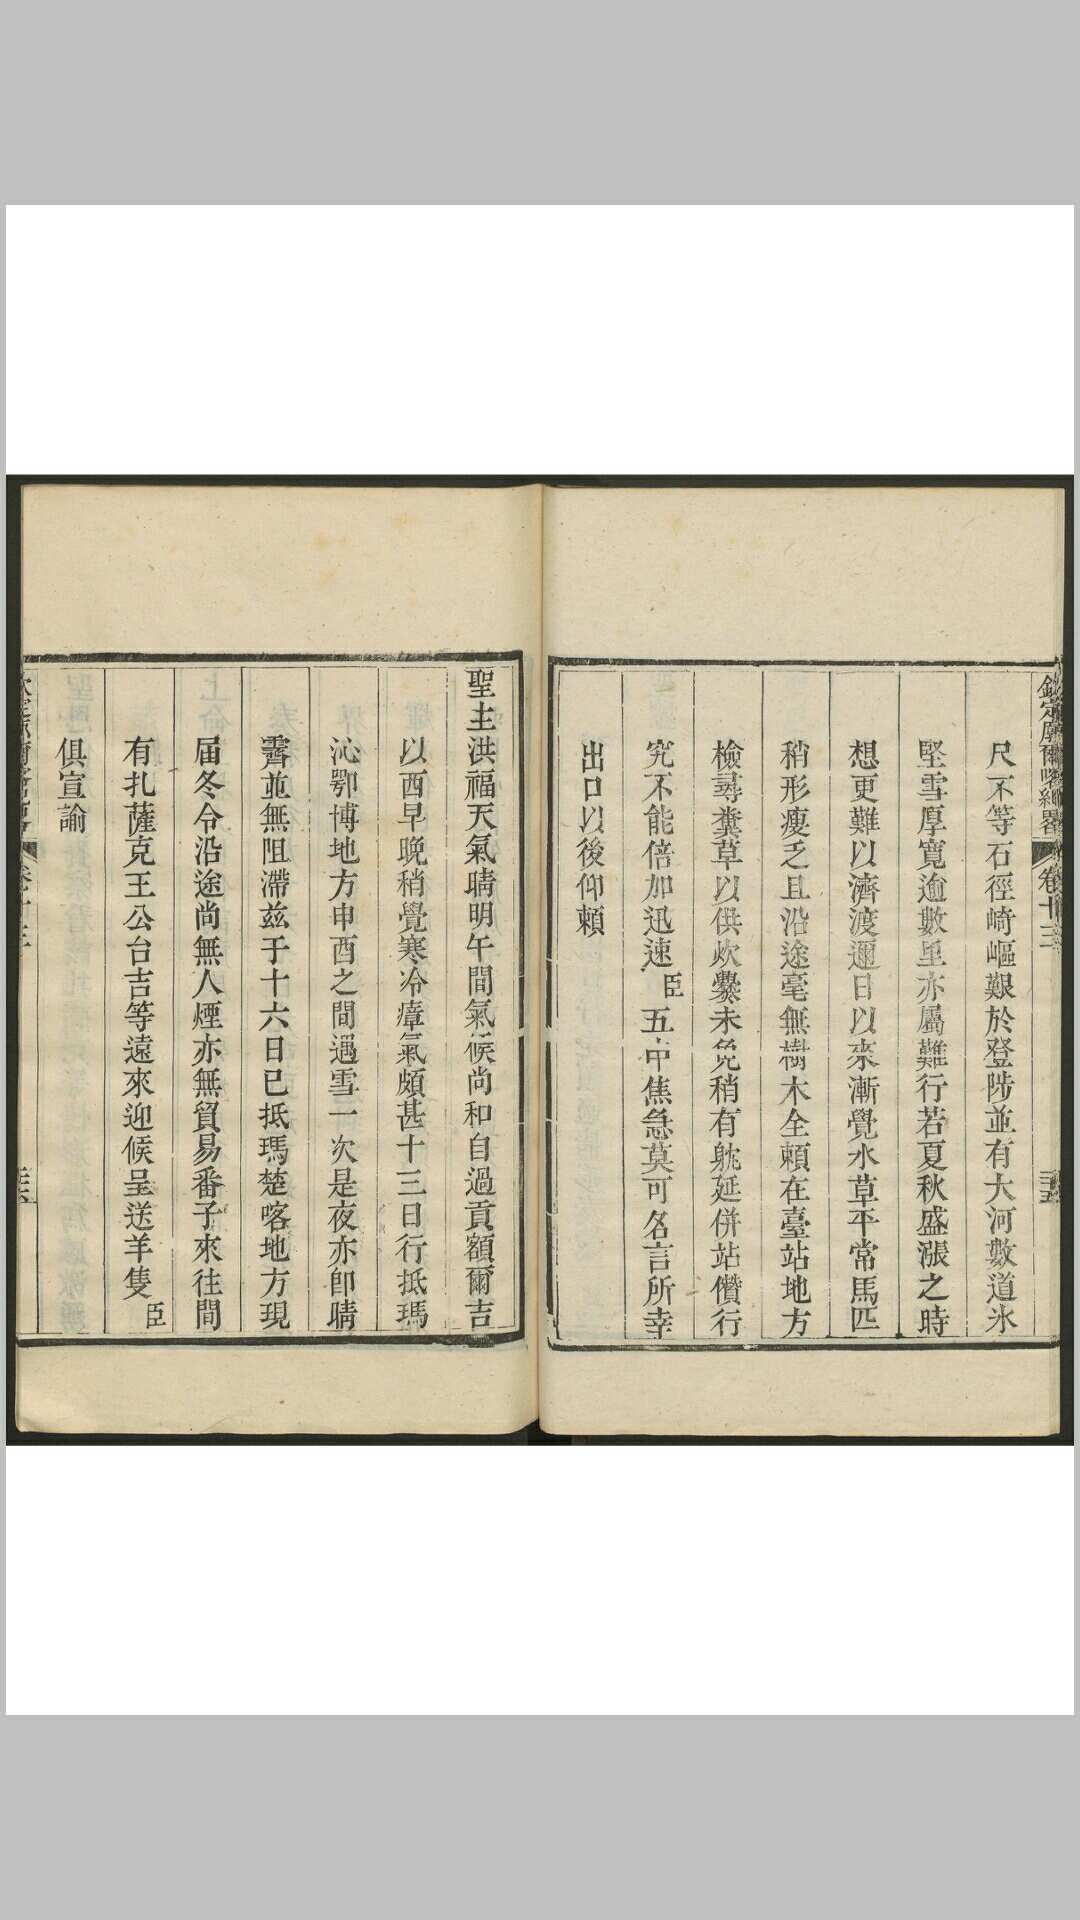 欽定廓爾喀紀畧 卷十三 三五
尺不等石徑崎嶇艱於登陟並有大河數道氷
堅雪厚寬逾數里亦屬難行若夏秋盛漲之時
想更難以濟渡邇日以來漸覺水草平常馬匹
稍形瘦乏且沿途毫無樹木全賴在臺站地方
檢尋糞草以供炊爨未免稍有躭延併站儹行
究不能倍加迅速臣五中焦急莫可名言所幸
出口以後仰賴
聖主洪福天氣晴明午間氣候尚和自過貢額爾吉
以西早晚稍覺寒冷瘴氣頗甚十三日行抵瑪
沁鄂博地方申酉之間遇雪一次是夜亦卽晴
霽並無阻滯茲于十六日已抵瑪楚喀地方現
届冬令沿途尚無人煙亦無貿易番子來往間
有扎薩克王公台吉等遠來迎候呈送羊隻臣
俱宣諭